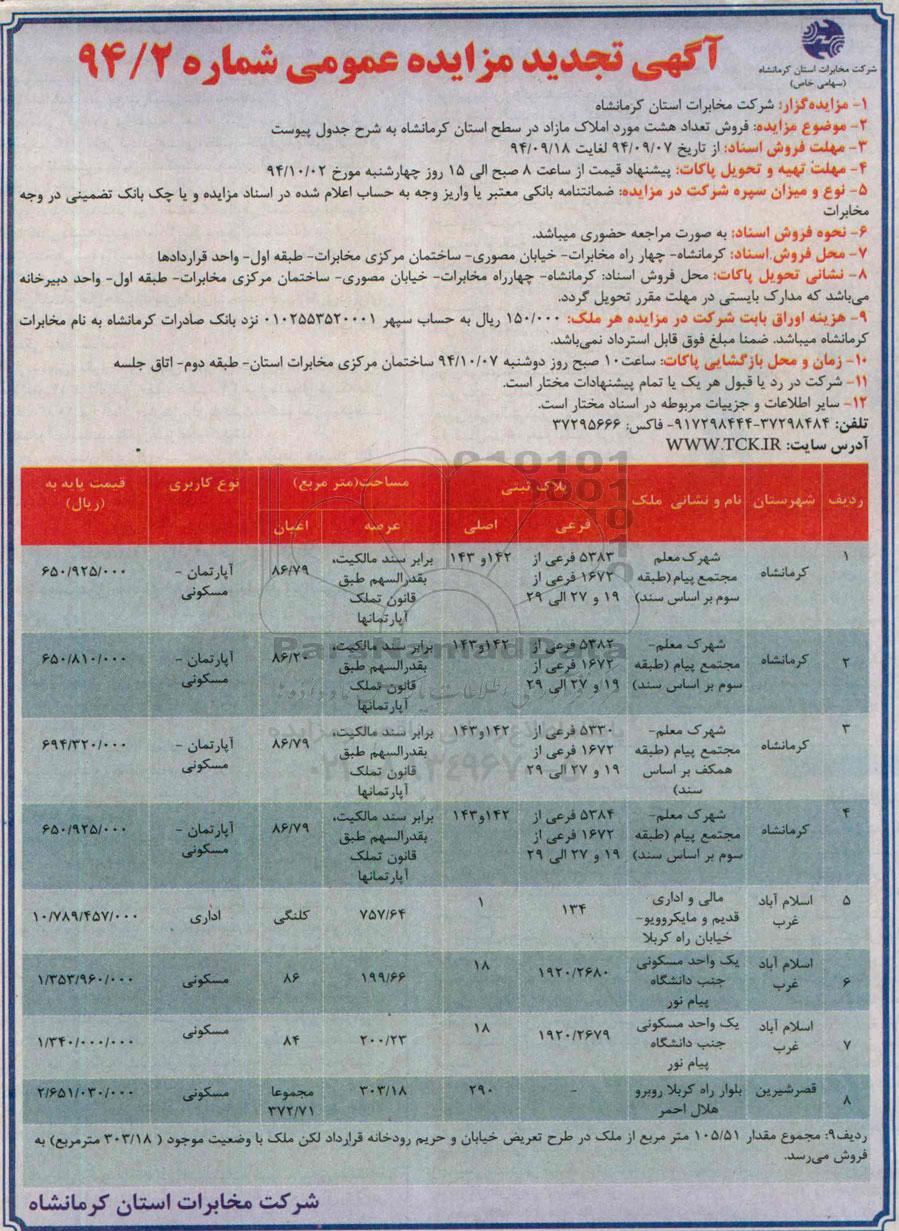 شرکت مخابرات استان کرمانشاه
(سهامی خاص)
آگهی تجدید مزایده عمومی شماره ۹۴/۲
۱- مزایده‌گزار: شرکت مخابرات استان کرمانشاه
۲- موضوع مزایده: فروش تعداد هشت مورد املاک مازاد در سطح استان کرمانشاه به شرح جدول پیوست
۳- مهلت فروش اسناد: از تاریخ ۹۴/۰۹/۰۷ لغایت ۹۴/۰۹/۱۸
۴- مهلت تهیه و تحویل پاکات: پیشنهاد قیمت از ساعت ۸ صبح الی ۱۵ روز چهارشنبه مورخ ۹۴/۱۰/۰۲
۵- نوع و میزان سپره شرکت در مزایده: ضمانتنامه بانکی معتبر یا واریز وجه به حساب اعلام شده در اسناد مزایده و یا چک بانک تضمینی در وجه
مخابرات
۶- نحوه فروش اسناد: به صورت مراجعه حضوری میباشد.
۷- محل فروش اسناد: کرمانشاه- چهار راه مخابرات- خیابان مصوری- ساختمان مرکزی مخابرات- طبقه اول- واحد قراردادها
۸- نشانی تحویل پاکات: محل فروش اسناد: کرمانشاه- چهارراه مخابرات- خیابان مصوری- ساختمان مرکزی مخابرات- طبقه اول- واحد دبیرخانه
می‌باشد که مدارک بایستی در مهلت مقرر تحویل گردد.
۹- هزینه اوراق بابت شرکت در مزایده هر ملک: ۱۵۰/۰۰۰ ریال به حساب سپهر ۰۱۰۲۵۵۳۵۲۰۰۰۱ نزد بانک صادرات کرمانشاه به نام مخابرات
کرمانشاه میباشد. ضمنا مبلغ فوق قابل استرداد نمی‌باشد.
۱۰- زمان و محل بازگشایی پاکات: ساعت ۱۰ صبح روز دوشنبه ۹۴/۱۰/۰۷ ساختمان مرکزی مخابرات استان- طبقه دوم- اتاق جلسه
۱۱- شرکت در رد یا قبول هر یک یا تمام پیشنهادات مختار است.
۱۲- سایر اطلاعات و جزییات مربوطه در اسناد مختار است.
تلفن: ۳۷۲۹۸۴۸۴-۹۱۷۲۹۸۴۴۴- فاکس: ۳۷۲۹۵۶۶۶
آدرس سایت: WWW.TCK.IR
ردیف شهرستان نام و نشانی ملک پلاک ثبتی مساحت(متر مربع) نوع کاربری قیمت پایه به
(ریال)
فرعی اصلی عرصه اعیان
۱ کرمانشاه شهرک معلم ۵۳۸۳ فرعی از ۱۴۲و ۱۴۳ برابر سند مالکیت، ۸۶/۷۹ آپارتمان - ۶۵۰/۹۲۵/۰۰۰
مجتمع پیام (طبقه ۱۶۷۲ فرعی از بقدرالسهم طبق مسکونی
سوم بر اساس سند) ۱۹ و ۲۷ الی ۲۹ قانون تملک
آپارتمانها
۲ کرمانشاه شهرک معلم- ۵۳۸۲ فرعی از ۱۴۲و۱۴۳ برابر سند مالکیت، ۸۶/۲۰ آپارتمان - ۶۵۰/۸۱۰/۰۰۰
مجتمع پیام (طبقه ۱۶۷۲ فرعی از بقدرالسهم طبق مسکونی
سوم بر اساس سند) ۱۹ و ۲۷ الی ۲۹ قانون تملک
آپارتمانها
۳ کرمانشاه شهرک معلم- ۵۳۳۰ فرعی از ۱۴۲و۱۴۳ برابر سند مالکیت، ۸۶/۷۹ آپارتمان - ۶۹۴/۳۲۰/۰۰۰
مجتمع پیام (طبقه ۱۶۷۲ فرعی از بقدرالسهم طبق مسکونی
همکف بر اساس ۱۹ و ۲۷ الی ۲۹ قانون تملک
سند) آپارتمانها
۴ کرمانشاه شهرک معلم- ۵۳۸۴ فرعی از ۱۴۲و۱۴۳ برابر سند مالکیت، ۸۶/۷۹ آپارتمان - ۶۵۰/۹۲۵/۰۰۰
مجتمع پیام (طبقه ۱۶۷۲ فرعی از بقدرالسهم طبق مسکونی
سوم بر اساس سند) ۱۹ و ۲۷ الی ۲۹ قانون تملک
آپارتمانها
۵ اسلام آباد مالی و اداری ۱۳۴ ۱ ۷۵۷/۶۴ کلنگی اداری ۱۰/۷۸۹/۴۵۷/۰۰۰
غرب قدیم و مایکروویو-
خیابان راه کربلا
۶ اسلام آباد یک واحد مسکونی ۱۹۲۰/۲۶۸۰ ۱۸ ۱۹۹/۶۶ ۸۶ مسکونی ۱/۳۵۳/۹۶۰/۰۰۰
غرب جنب دانشگاه
پیام نور
۷ اسلام آباد یک واحد مسکونی ۱۹۲۰/۲۶۷۹ ۱۸ ۲۰۰/۲۳ ۸۴ مسکونی ۱/۳۴۰/۰۰۰/۰۰۰
غرب جنب دانشگاه
پیام نور
۸ قصرشیرین بلوار راه کربلا روبرو - ۲۹۰ ۳۰۳/۱۸ مجموعا مسکونی ۲/۶۵۱/۰۳۰/۰۰۰
هلال احمر ۳۷۲/۷۱
ردیف۹: مجموع مقدار ۱۰۵/۵۱ متر مربع از ملک در طرح تعریض خیابان و حریم رودخانه قرارداد لکن ملک با وضعیت موجود ( ۳۰۳/۱۸ مترمربع) به
فروش می‌رسد.
شرکت مخابرات استان کرمانشاه
ParsNamadData